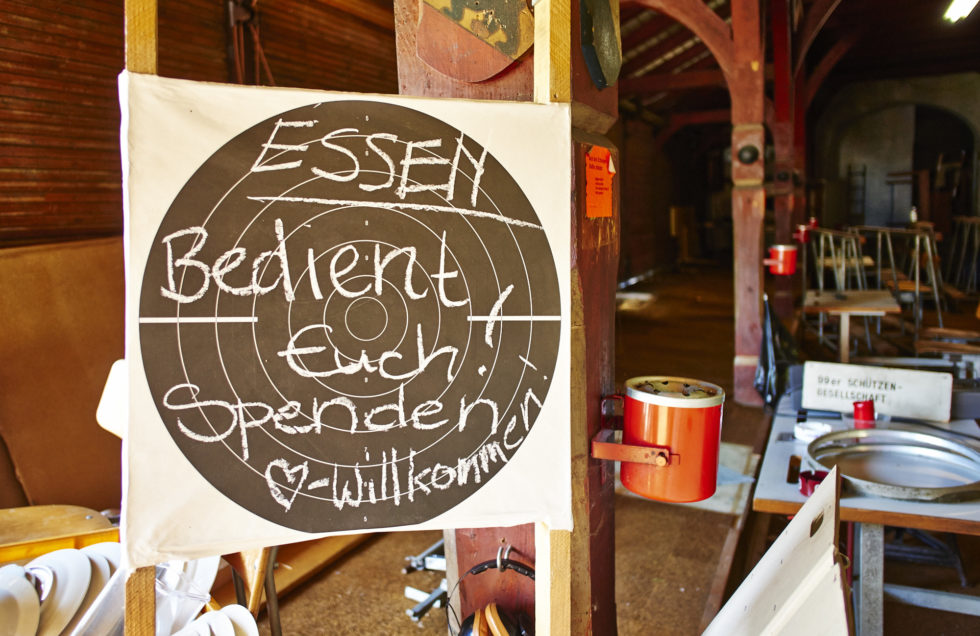 ESSEN
Bedient
Euch!
Spenden
♡-Willkommen!
99er SCHÜTZEN-
GESELLSCHAFT